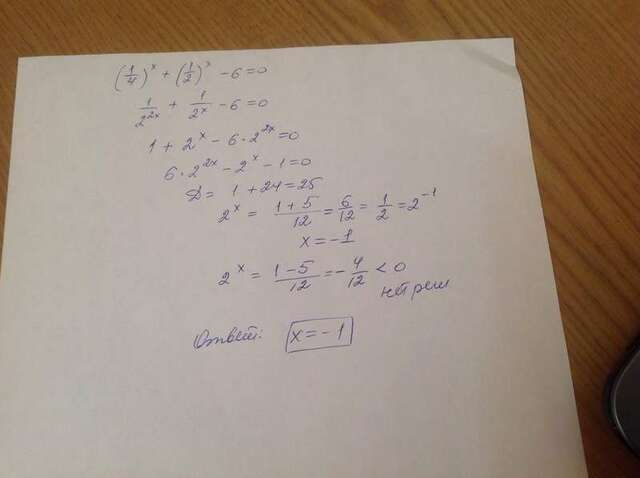 (1/4)^x + (1/2)^x - 6 = 0
1/2^2x + 1/2^x - 6 = 0
1 + 2^x - 6 · 2^2x = 0
6 · 2^2x - 2^x - 1 = 0
D = 1 + 24 = 25
2^x = (1 + 5)/12 = 6/12 = 1/2 = 2^-1
x = -1
2^x = (1 - 5)/12 = -4/12 < 0
нет реш
Ответ: x = -1